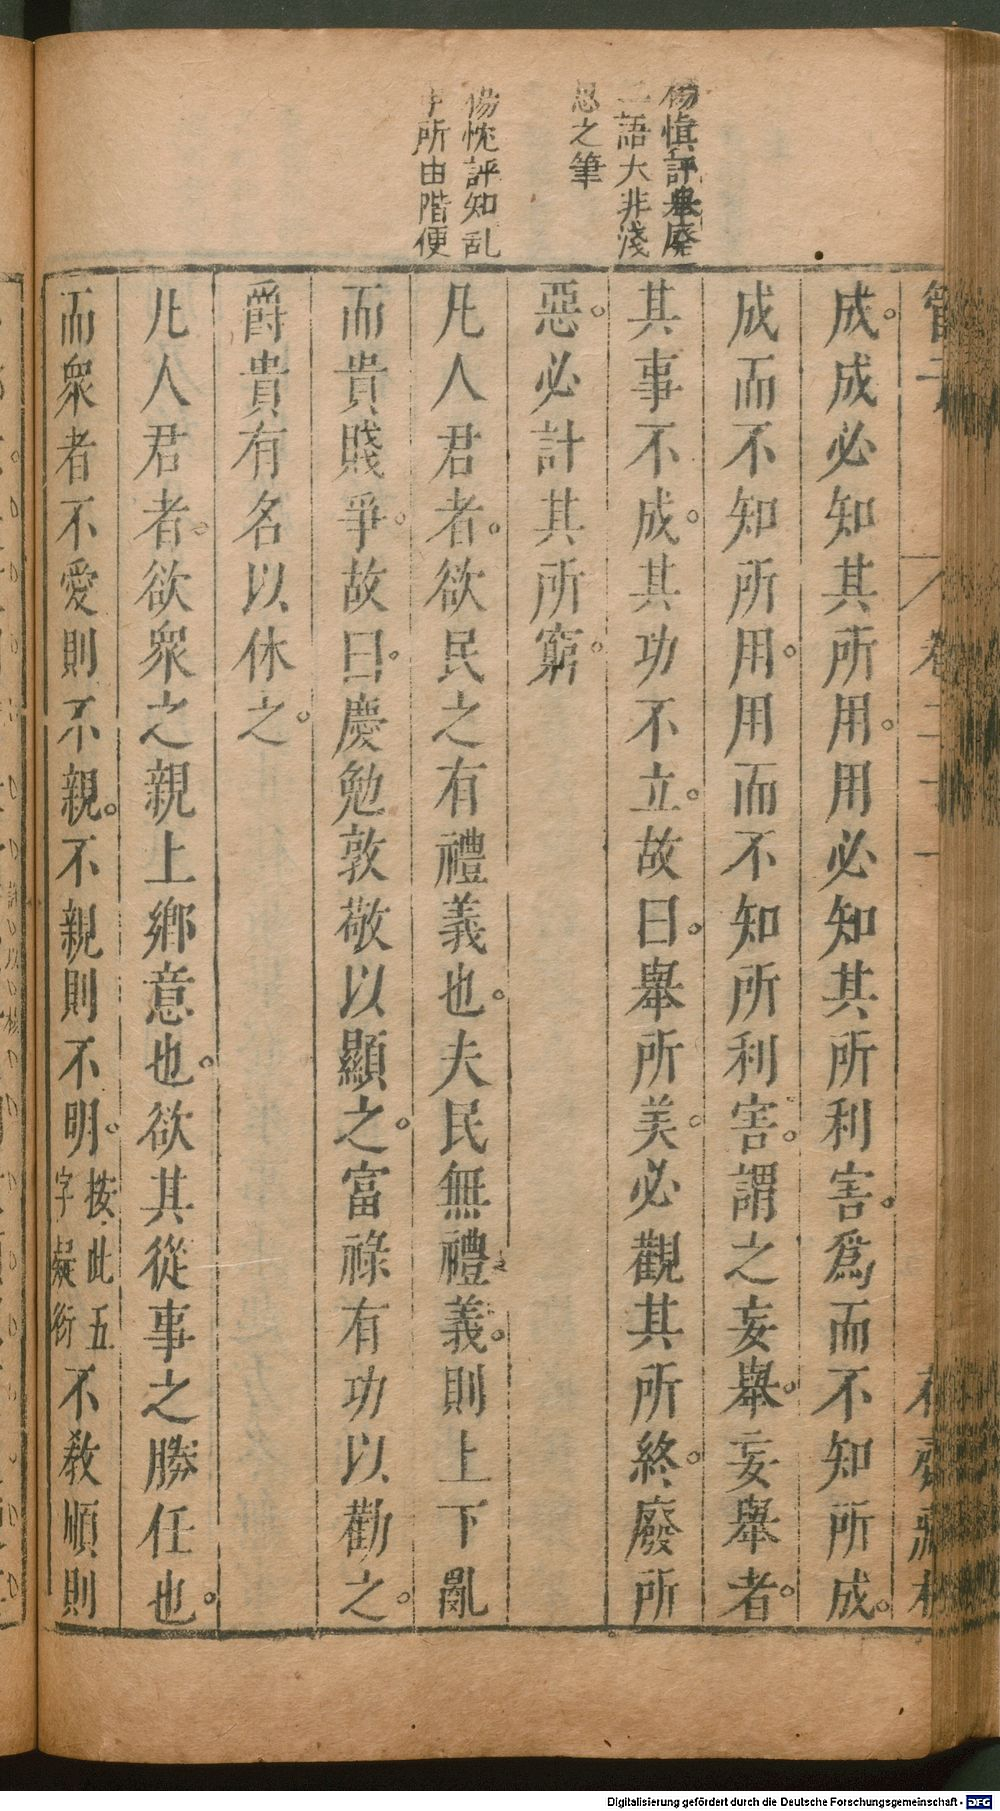 楊慎評舉廢
二語大非淺
思之筆
楊忱評知乱
所由階便
管子
卷二十一
成。成必知其所用。用必知其所利害。爲而不知所成。
成而不知所用。用而不知所利害。謂之妄舉。妄舉者。
其事不成。其功不立。故曰。舉所美。必觀其所終。廢所
惡。必計其所窮。
凡人君者。欲民之有禮義也。夫民無禮義。則上下亂
而貴賤爭。故曰。慶勉敦敬以顯之。富祿有功以勸之。
爵貴有名以休之。
凡人君者。欲衆之親上鄉意也。欲其從事之勝任也。
而衆者不愛則不親。不親則不明。按此五字疑衍不教順則
Digitalisierung gefördert durch die Deutsche Forschungsgemeinschaft - DFG